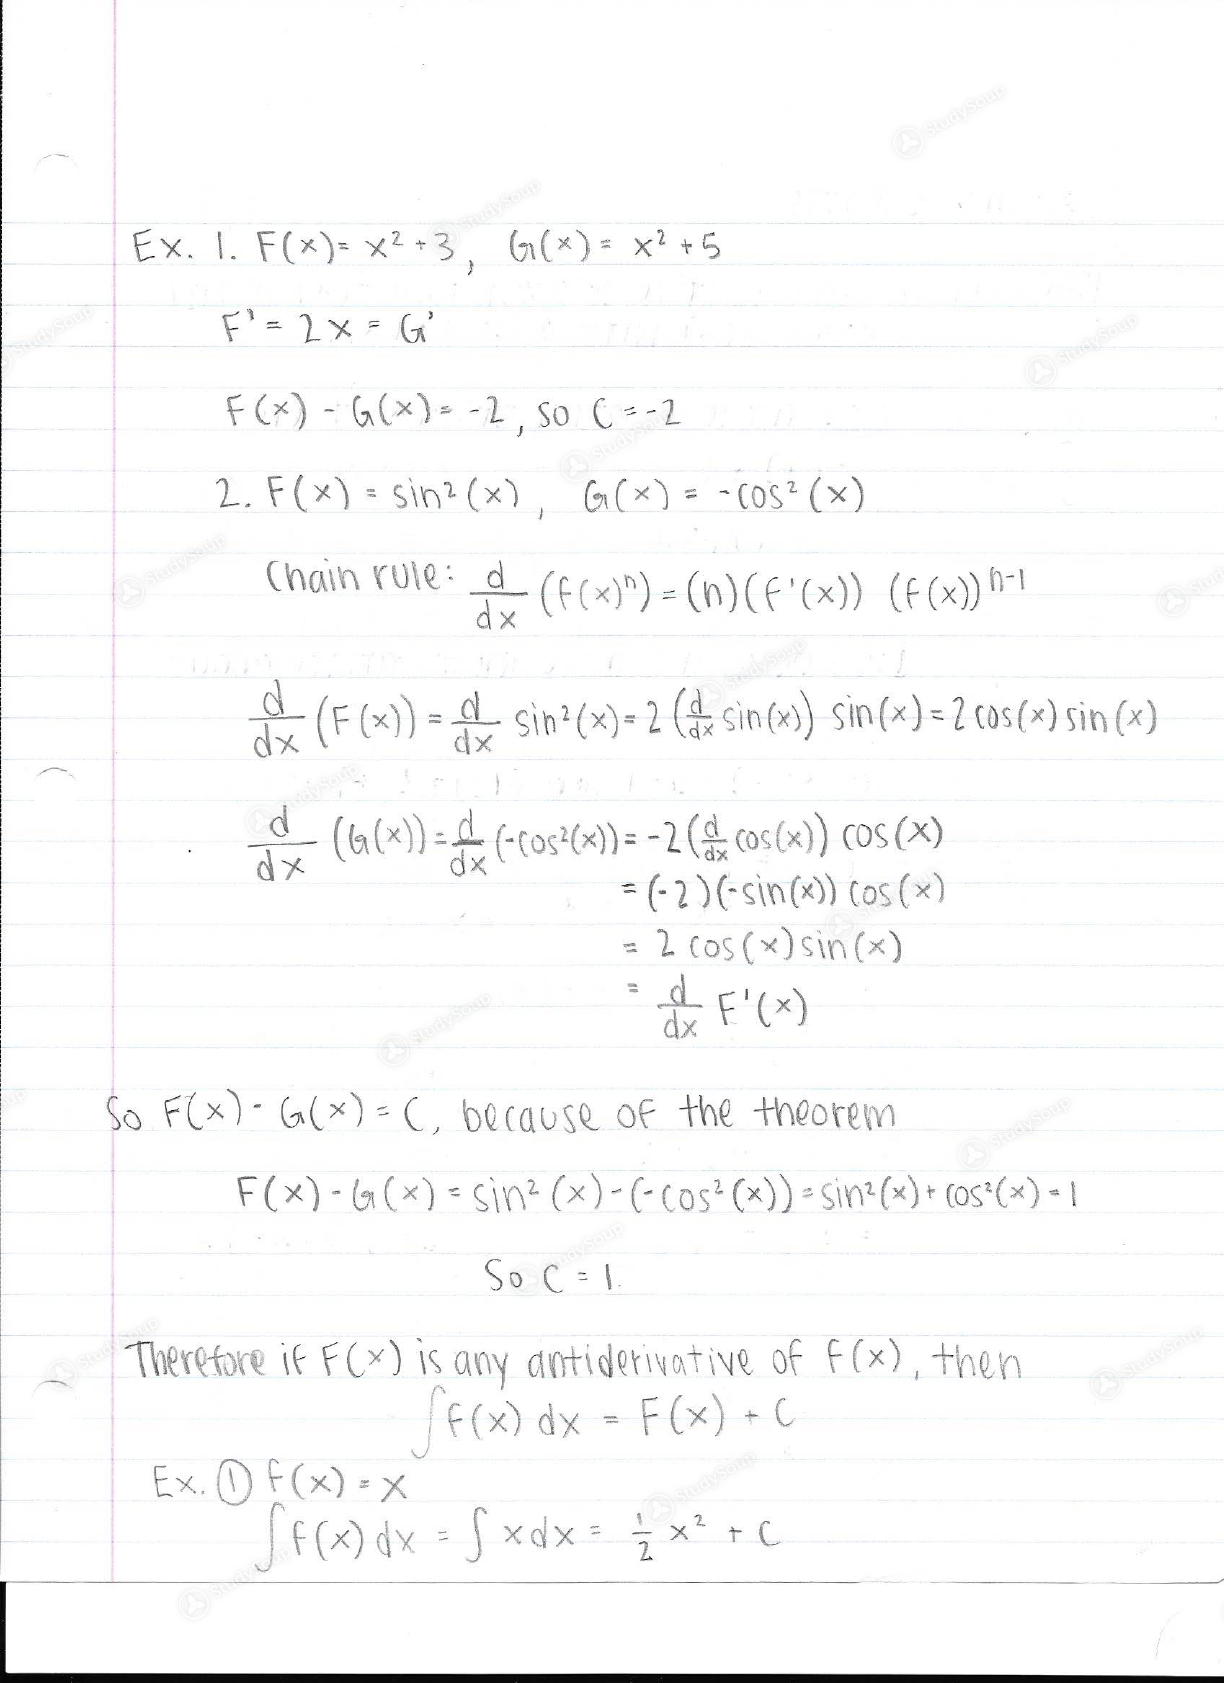 Ex. 1. F(x) = x² + 3, G(x) = x² + 5
F' = 2x = G'
F(x) - G(x) = -2, so C = -2
2. F(x) = sin²(x), G(x) = -cos²(x)
Chain rule: d/dx (f(x)ⁿ) = (n)(f'(x)) (f(x))ⁿ⁻¹
d/dx (F(x)) = d/dx sin²(x) = 2 (d/dx sin(x)) sin(x) = 2 cos(x) sin(x)
d/dx (G(x)) = d/dx (-cos²(x)) = -2 (d/dx cos(x)) cos(x)
= (-2)(-sin(x)) cos(x)
= 2 cos(x) sin(x)
= d/dx F'(x)
So F(x) - G(x) = C, because of the theorem
F(x) - G(x) = sin²(x) - (-cos²(x)) = sin²(x) + cos²(x) = 1
So C = 1.
Therefore if F(x) is any antiderivative of f(x), then
∫f(x) dx = F(x) + C
Ex. ① f(x) = x
∫f(x) dx = ∫ x dx = 1/2 x² + C
StudySoup